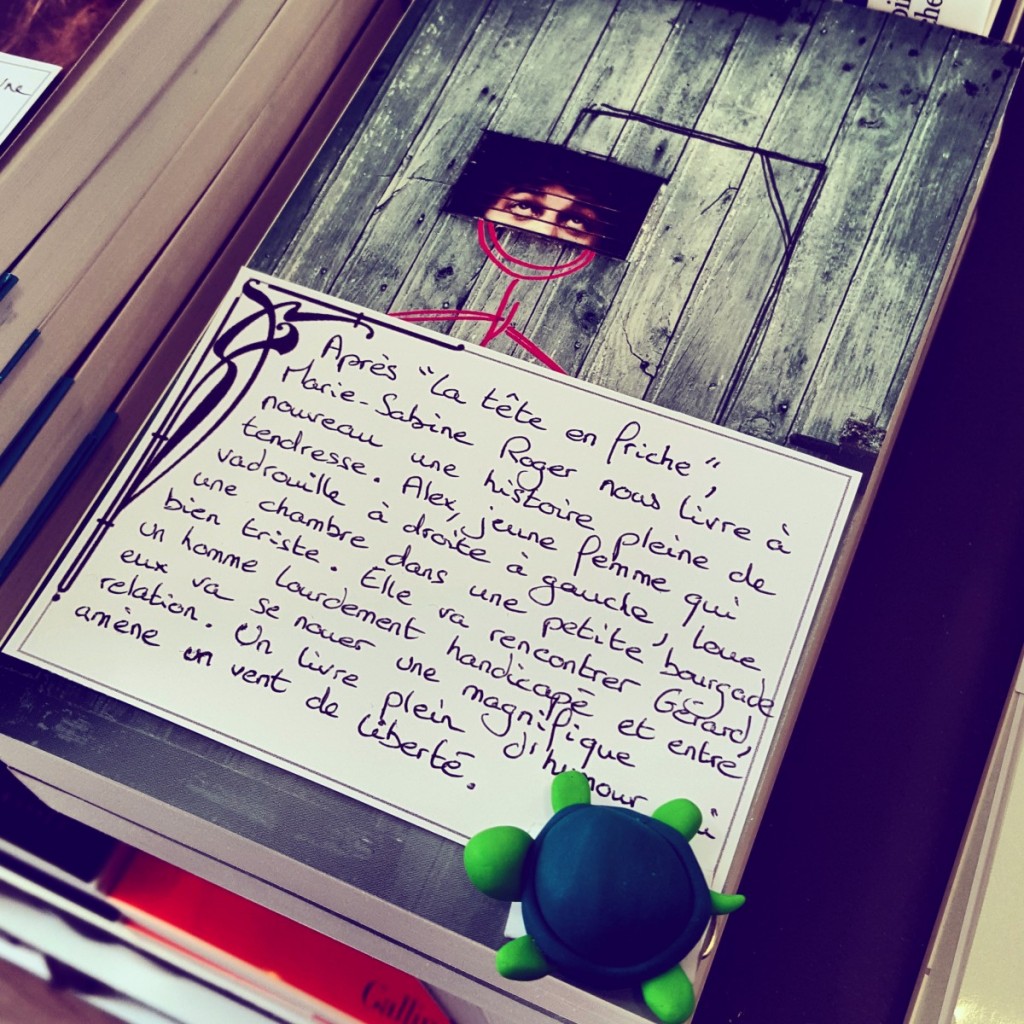 Après "La tête en friche",
Marie-Sabine Roger nous livre à
nouveau une histoire pleine de
tendresse. Alex, jeune femme qui
vadrouille à droite à gauche, loue
une chambre dans une petite bourgade
bien triste. Elle va rencontrer Gérard,
un homme lourdement handicapé et entre
eux va se nouer une magnifique
relation. Un livre plein d'humour
amène un vent de liberté.